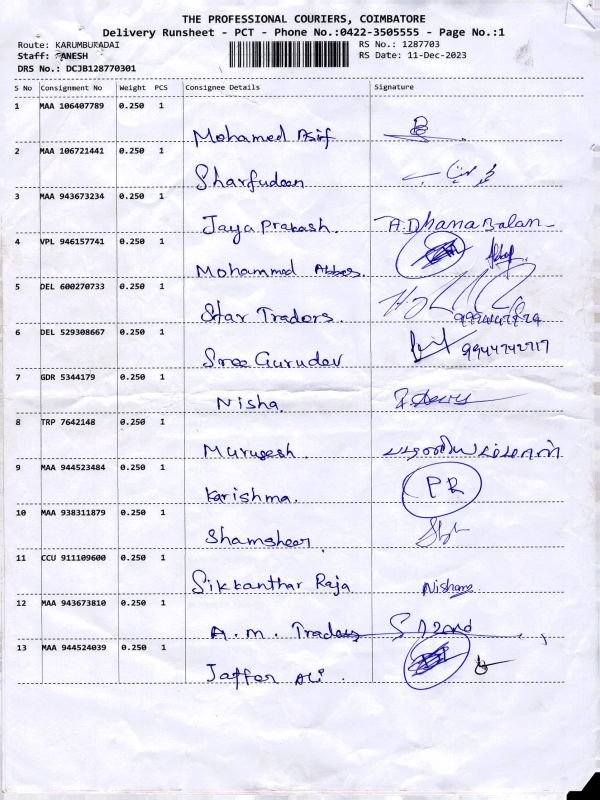 THE PROFESSIONAL COURIERS, COIMBATORE
Delivery Runsheet - PCT - Phone No.:0422-3505555 - Page No.:1
Route: KARUMBUKADAI RS No.: 1287703
Staff: ANESH RS Date: 11-Dec-2023
DRS No.: DCJB128770301
S No Consignment No Weight PCS Consignee Details Signature
1 MAA 106407789 0.250 1
Mohamed Asif
2 MAA 106721441 0.250 1
Sharfudeen
3 MAA 943673234 0.250 1
Jaya Prakash. A. Dhanabalan
4 VPL 946157741 0.250 1
Mohammed Abbas.
5 DEL 600270733 0.250 1
Star Traders.
6 DEL 529308667 0.250 1
Sree Gurudev 9944742717
7 GDR 5344179 0.250 1
Nisha.
8 TRP 7642148 0.250 1
Murugesh.
9 MAA 944523484 0.250 1
Karishma. PR
10 MAA 938311879 0.250 1
Shamsheer.
11 CCU 911109600 0.250 1
Sikkanthar Raja
12 MAA 943673810 0.250 1
A.M. Traders
13 MAA 944524039 0.250 1
Jaffer Ali.